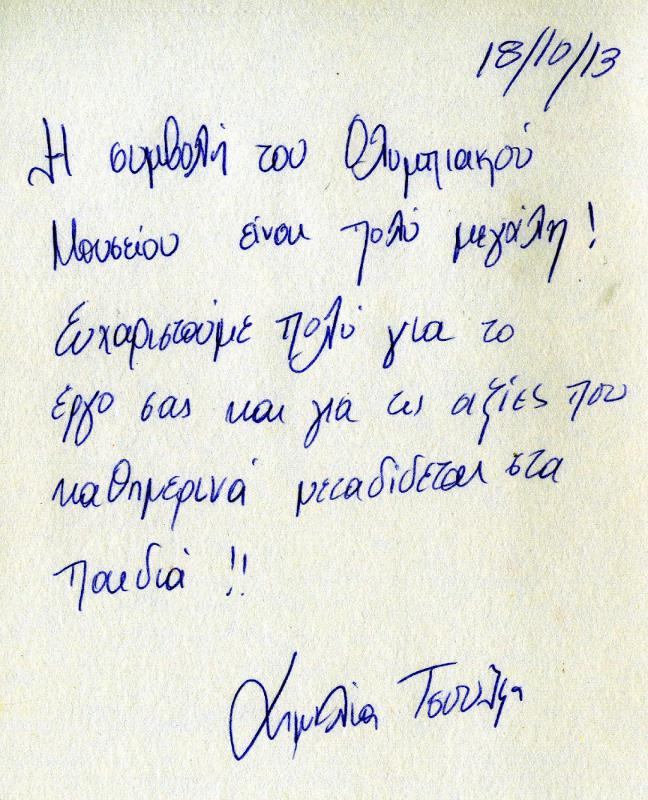 18/10/13
Η συμβολή του Ολυμπιακού
Μουσείου είναι πολύ μεγάλη!
Ευχαριστούμε πολύ για το
έργο σας και για τις αξίες που
καθημερινά μεταδίδεται στα
παιδιά !!